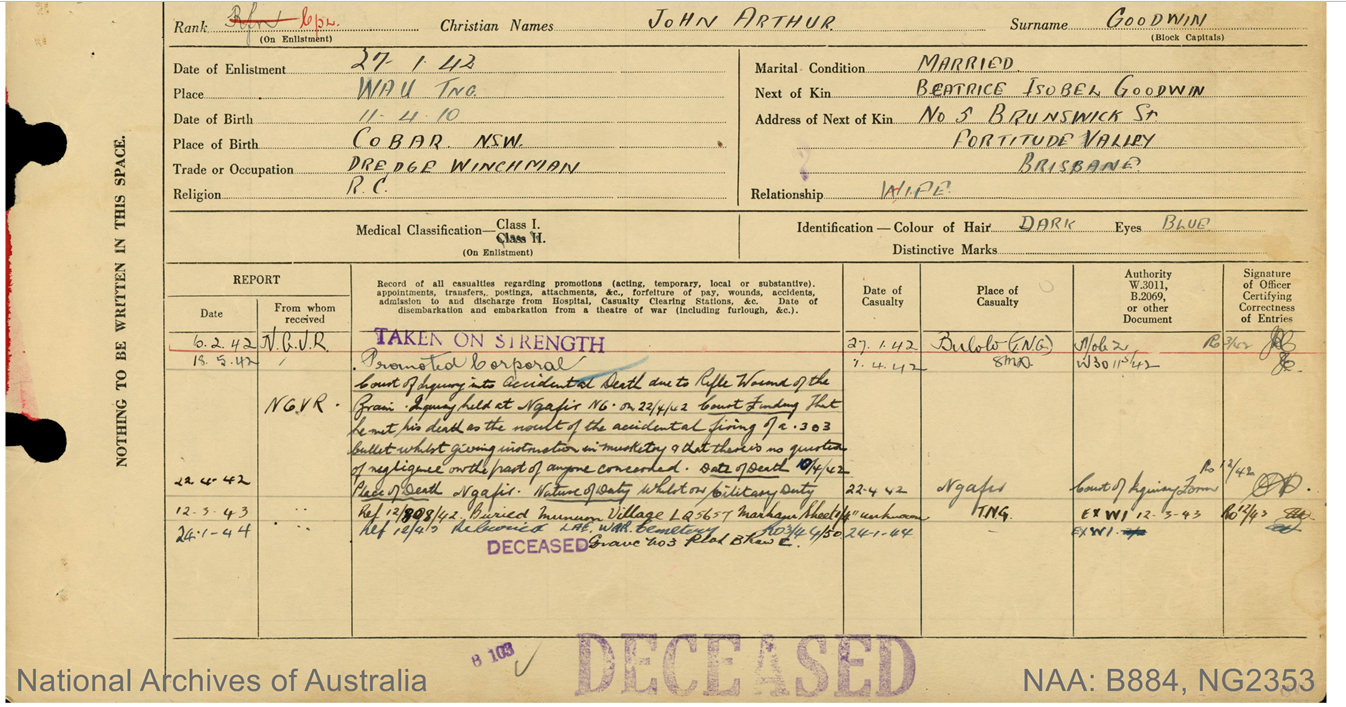 Rank Rfn Cpl. Christian Names JOHN ARTHUR. Surname GOODWIN
(On Enlistment) (Block Capitals)
Date of Enlistment 27. 1. 42
Place WAU TNG.
Date of Birth 11. 4. 10
Place of Birth COBAR. NSW.
Trade or Occupation DREDGE WINCHMAN
Religion R.C.
Marital Condition MARRIED.
Next of Kin BEATRICE ISOBEL GOODWIN
Address of Next of Kin No 5 BRUNSWICK St
FORTITUDE VALLEY
BRISBANE.
Relationship WIFE.
NOTHING TO BE WRITTEN IN THIS SPACE.
Medical Classification—Class I.
Class II.
(On Enlistment)
Identification—Colour of Hair DARK Eyes BLUE
Distinctive Marks
REPORT
Date
From whom
received
Record of all casualties regarding promotions (acting, temporary, local or substantive).
appointments, transfers, postings, attachments, &c., forfeiture of pay, wounds, accidents,
admission to and discharge from Hospital, Casualty Clearing Stations, &c. Date of
disembarkation and embarkation from a theatre of war (including furlough, &c.).
Date of
Casualty
Place of
Casualty
Authority
W.3011,
B.2069,
or other
Document
Signature
of Officer
Certifying
Correctness
of Entries
6. 2. 42 N.G.V.R. TAKEN ON STRENGTH 27. 1. 42 Bulolo (T.N.G.) Mob 2 Ro 3/42
18. 5. 42 Promoted Corporal 7. 4. 42 W3011
Court of Inquiry into Accidental Death due to Rifle Wound of the
NGVR. Brain. Inquiry held at Ngafir NG. on 22/4/42 Court Finding That
he met his death as the result of the accidental firing of a .303
bullet whilst giving instruction in musketry & that there is no question
of negligence on the part of anyone concerned. Date of Death 10/4/42
22-4-42 Place of Death Ngafir. Nature of Duty Whilst on Military Duty 22-4-42 Ngafir Court of Inquiry Form Ro 12/42
12-3-43 " Ref 12/808/42. Buried Munum Village LQ5657 Markham Sheet TNG. EXWI 12-3-43 Ro 12/43
24-1-44 " Ref 12/ Reburied LAE WAR Cemetery 24-1-44 EXWI
DECEASED Grave No 3 Plot B Row E.
B 103
DECEASED
National Archives of Australia
NAA: B884, NG2353